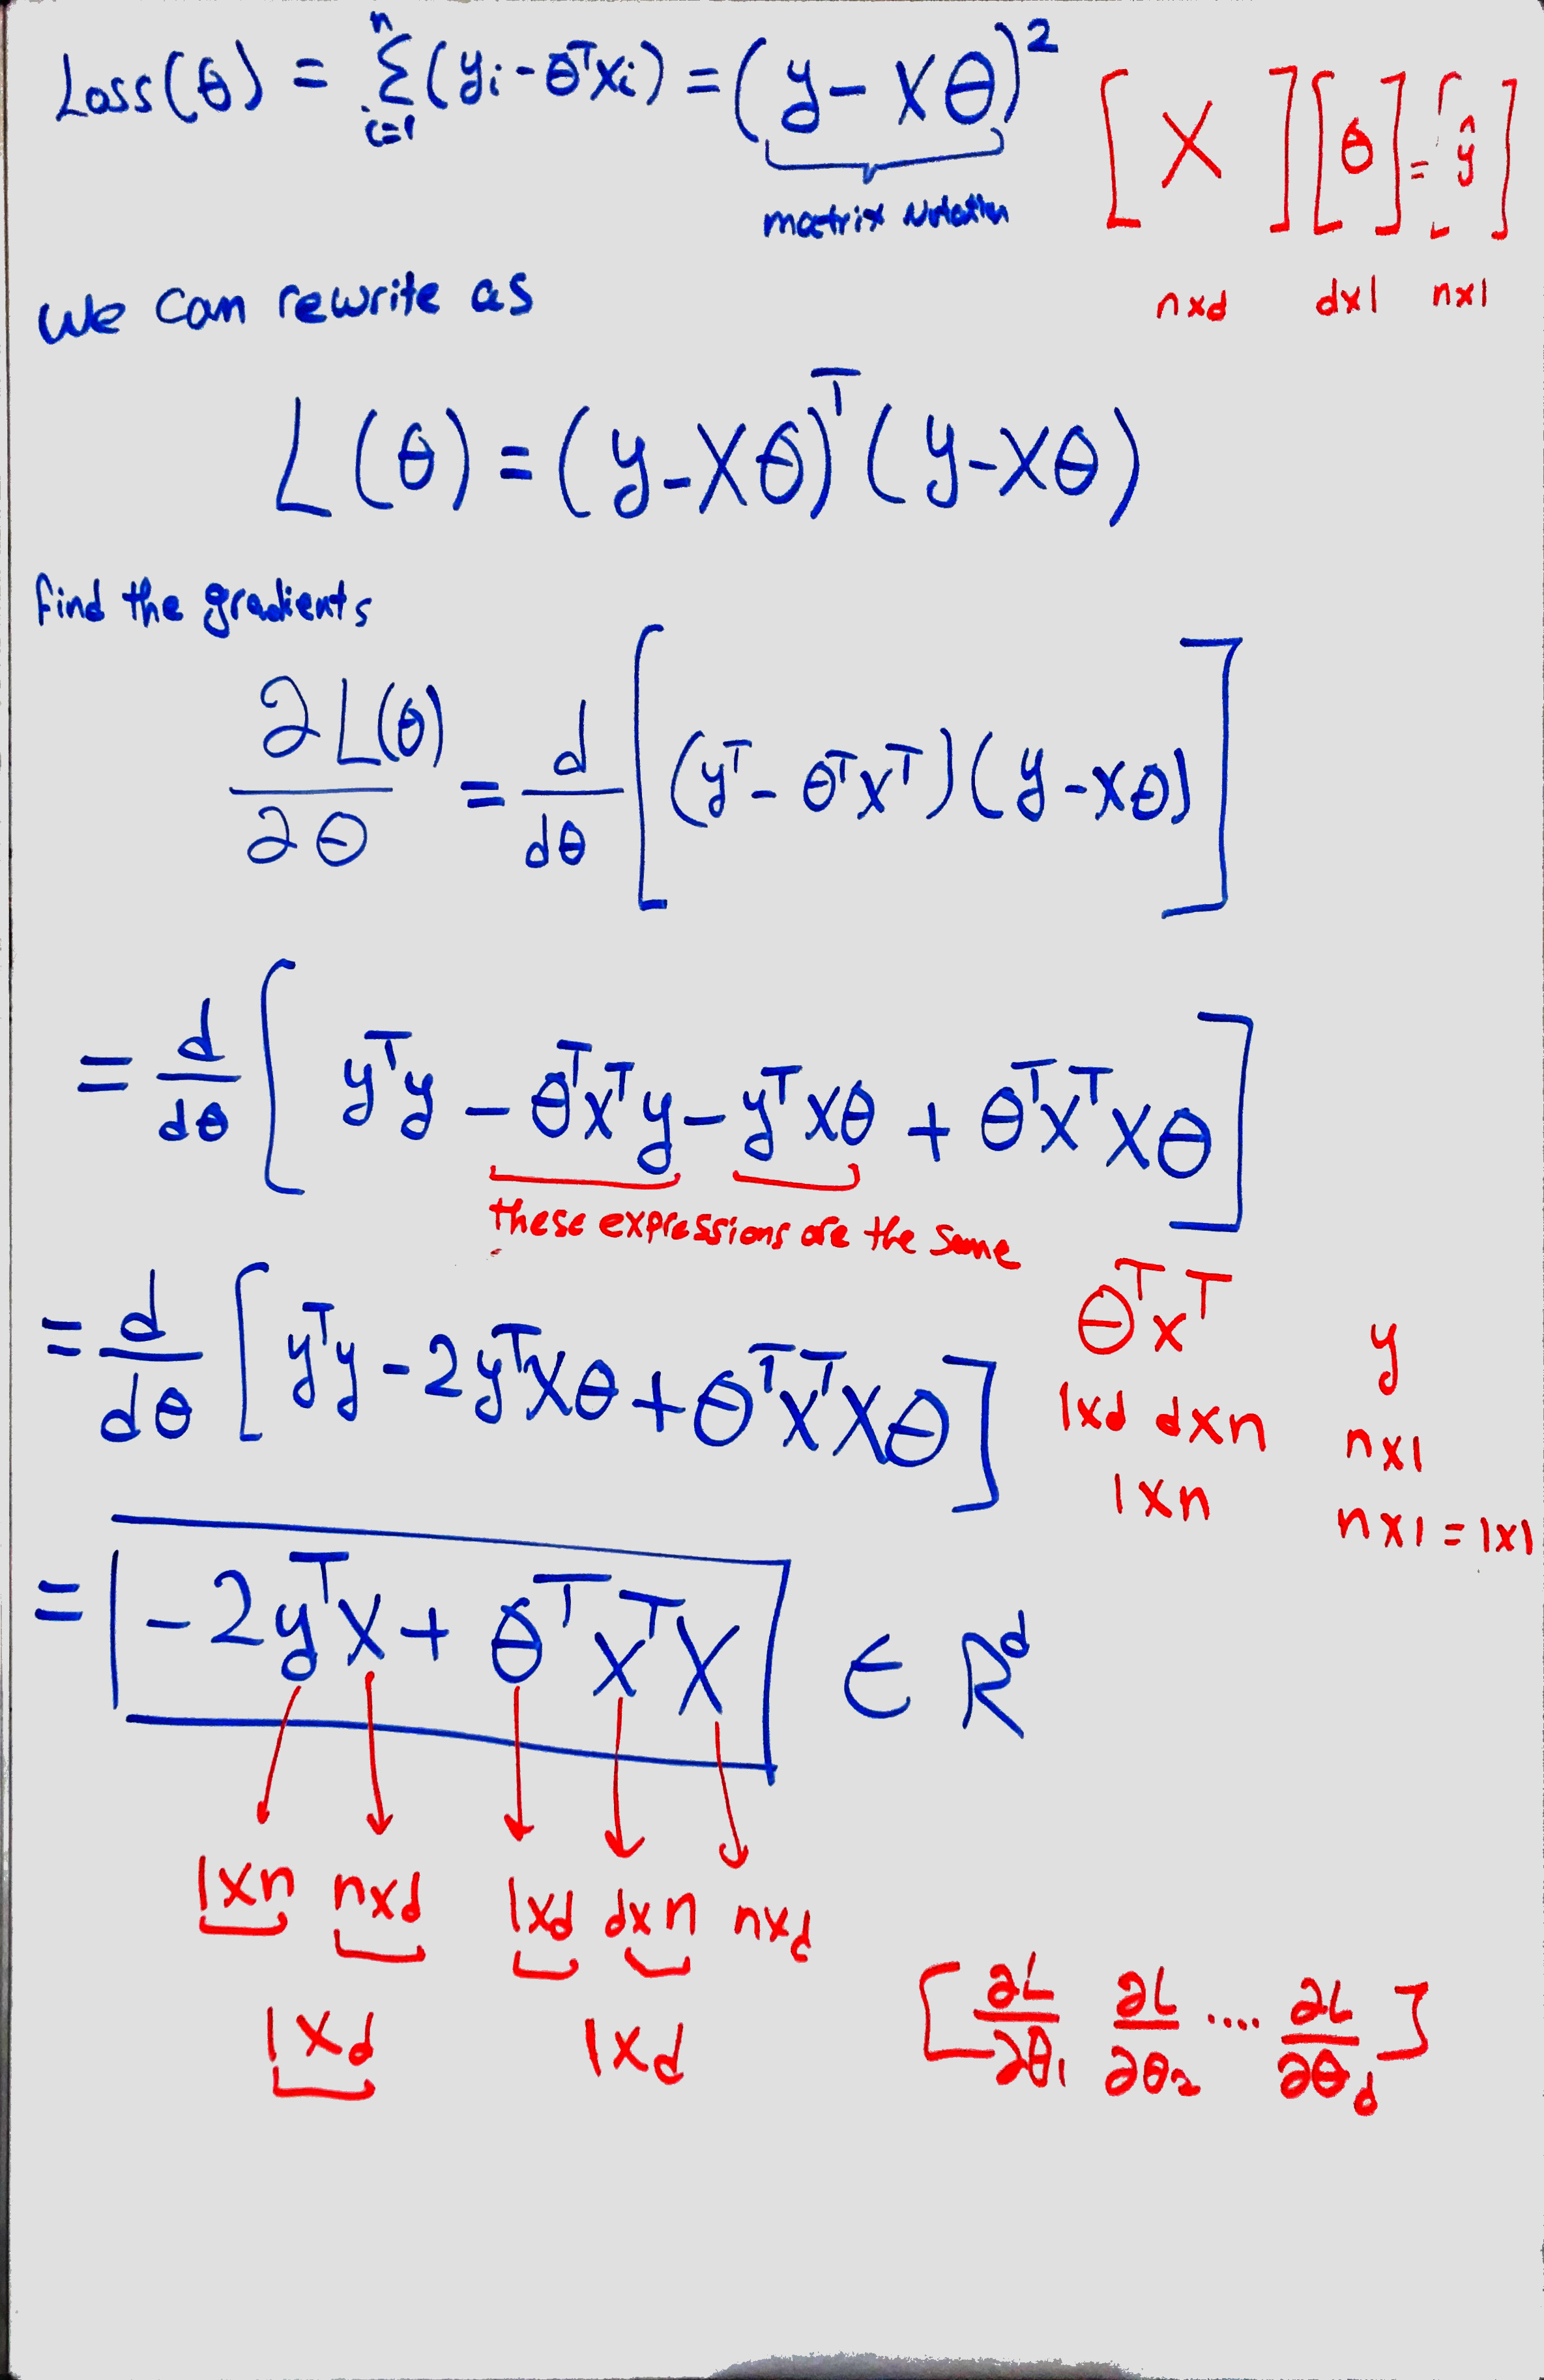 Loss(θ) = Σ_{i=1}^{n} (y_i - θ^T x_i) = (y - Xθ)^2
matrix Notation
[X] [θ] = [ŷ]
nxd dx1 nx1
we can rewrite as
L(θ) = (y - Xθ)^T (y - Xθ)
find the gradients
∂L(θ)/∂θ = d/dθ [(y^T - θ^T X^T)(y - Xθ)]
= d/dθ [y^T y - θ^T X^T y - y^T Xθ + θ^T X^T Xθ]
these expressions are the same
= d/dθ [y^T y - 2y^T Xθ + θ^T X^T Xθ]
θ^T X^T y
1xd dxn nx1
1xn nx1 = 1x1
= -2y^T X + θ^T X^T X ∈ R^d
1xn nxd 1xd dxn nxd
1xd 1xd
[∂L/∂θ_1 ∂L/∂θ_2 .... ∂L/∂θ_d]